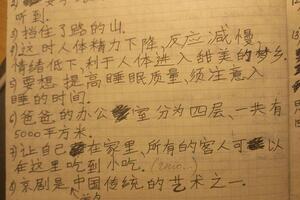 听到.
3) 挡住了路的山.
4) 这时人体精力下降,反应减慢,
情绪低下,利于人体进入甜美的梦乡.
5) 要想提高睡眠质量,须注意入
睡的时间.
6) 爸爸的办公室分为四层、一共有
5000平方米.
7) 让自己在家里、所有的客人可以
在这里吃到小吃.
8) 京剧是中国传统的艺术之一.